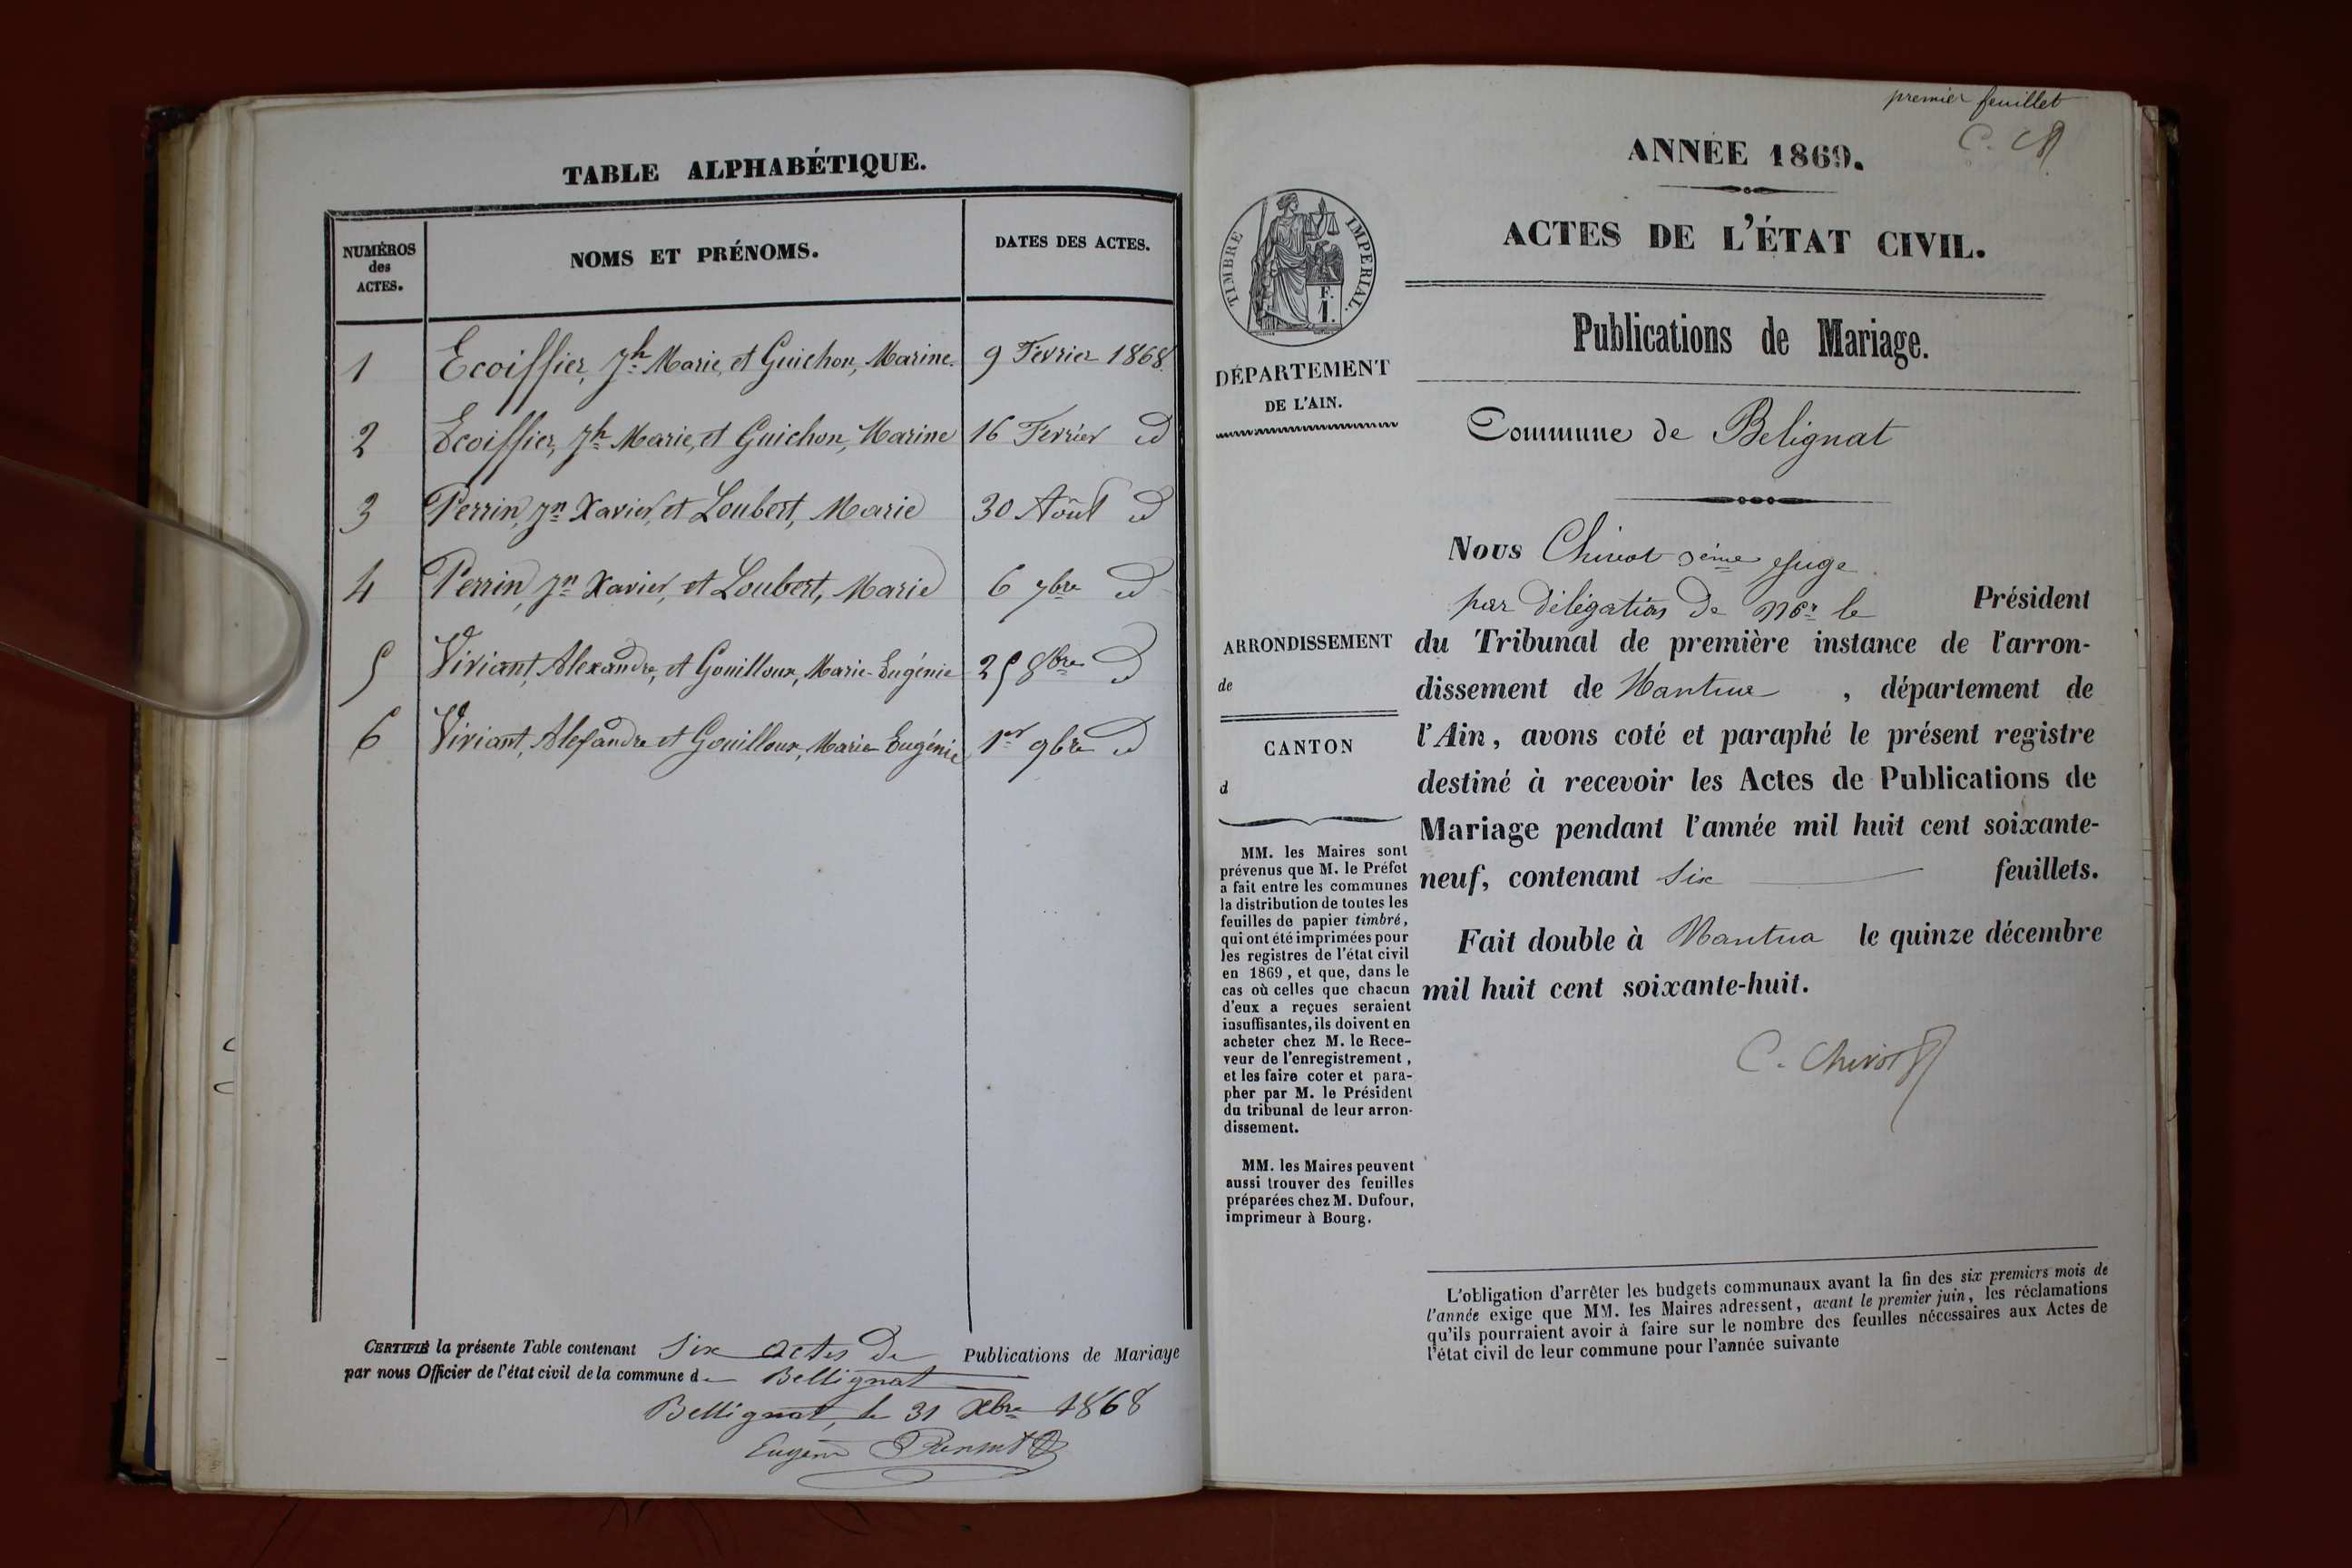 TABLE ALPHABÉTIQUE.
NUMÉROS
des
ACTES.
NOMS ET PRÉNOMS.
DATES DES ACTES.
1 Ecoiffier, Jh Marie, et Guichon, Marine. 9 Février 1868.
2 Ecoiffier, Jh Marie, et Guichon, Marine 16 Fevrier d
3 Perrin, Jn Xavier, et Loubert, Marie 30 Août d
4 Perrin, Jn Xavier, et Loubert, Marie 6 7bre d
5 Viviant, Alexandre, et Gouilloux, Marie-Eugénie 25 8bre d
6 Viviant, Alexandre et Gouilloux, Marie Eugénie 1er 9bre d
CERTIFIÉ la présente Table contenant Six actes de Publications de Mariage
par nous Officier de l'état civil de la commune de Bellignat
Bellignat, le 31 Xbre 1868
Eugène
premier feuillet
ANNÉE 1869.
ACTES DE L'ÉTAT CIVIL.
Publications de Mariage.
Commune de Belignat
TIMBRE IMPERIAL.
F.
1.
DÉPARTEMENT
DE L'AIN.
ARRONDISSEMENT
de
CANTON
d
MM. les Maires sont
prévenus que M. le Préfet
a fait entre les communes
la distribution de toutes les
feuilles de papier timbré,
qui ont été imprimées pour
les registres de l'état civil
en 1869, et que, dans le
cas où celles que chacun
d'eux a reçues seraient
insuffisantes, ils doivent en
acheter chez M. le Rece-
veur de l'enregistrement,
et les faire coter et para-
pher par M. le Président
du tribunal de leur arron-
dissement.
MM. les Maires peuvent
aussi trouver des feuilles
préparées chez M. Dufour,
imprimeur à Bourg.
Nous Chivot 3ème Juge
par délégation de Mr le Président
du Tribunal de première instance de l'arron-
dissement de Nantua, département de
l'Ain, avons coté et paraphé le présent registre
destiné à recevoir les Actes de Publications de
Mariage pendant l'année mil huit cent soixante-
neuf, contenant Six feuillets.
Fait double à Nantua le quinze décembre
mil huit cent soixante-huit.
C. Chivot
L'obligation d'arrêter les budgets communaux avant la fin des six premiers mois de
l'année exige que MM. les Maires adressent, avant le premier juin, les réclamations
qu'ils pourraient avoir à faire sur le nombre des feuilles nécessaires aux Actes de
l'état civil de leur commune pour l'année suivante